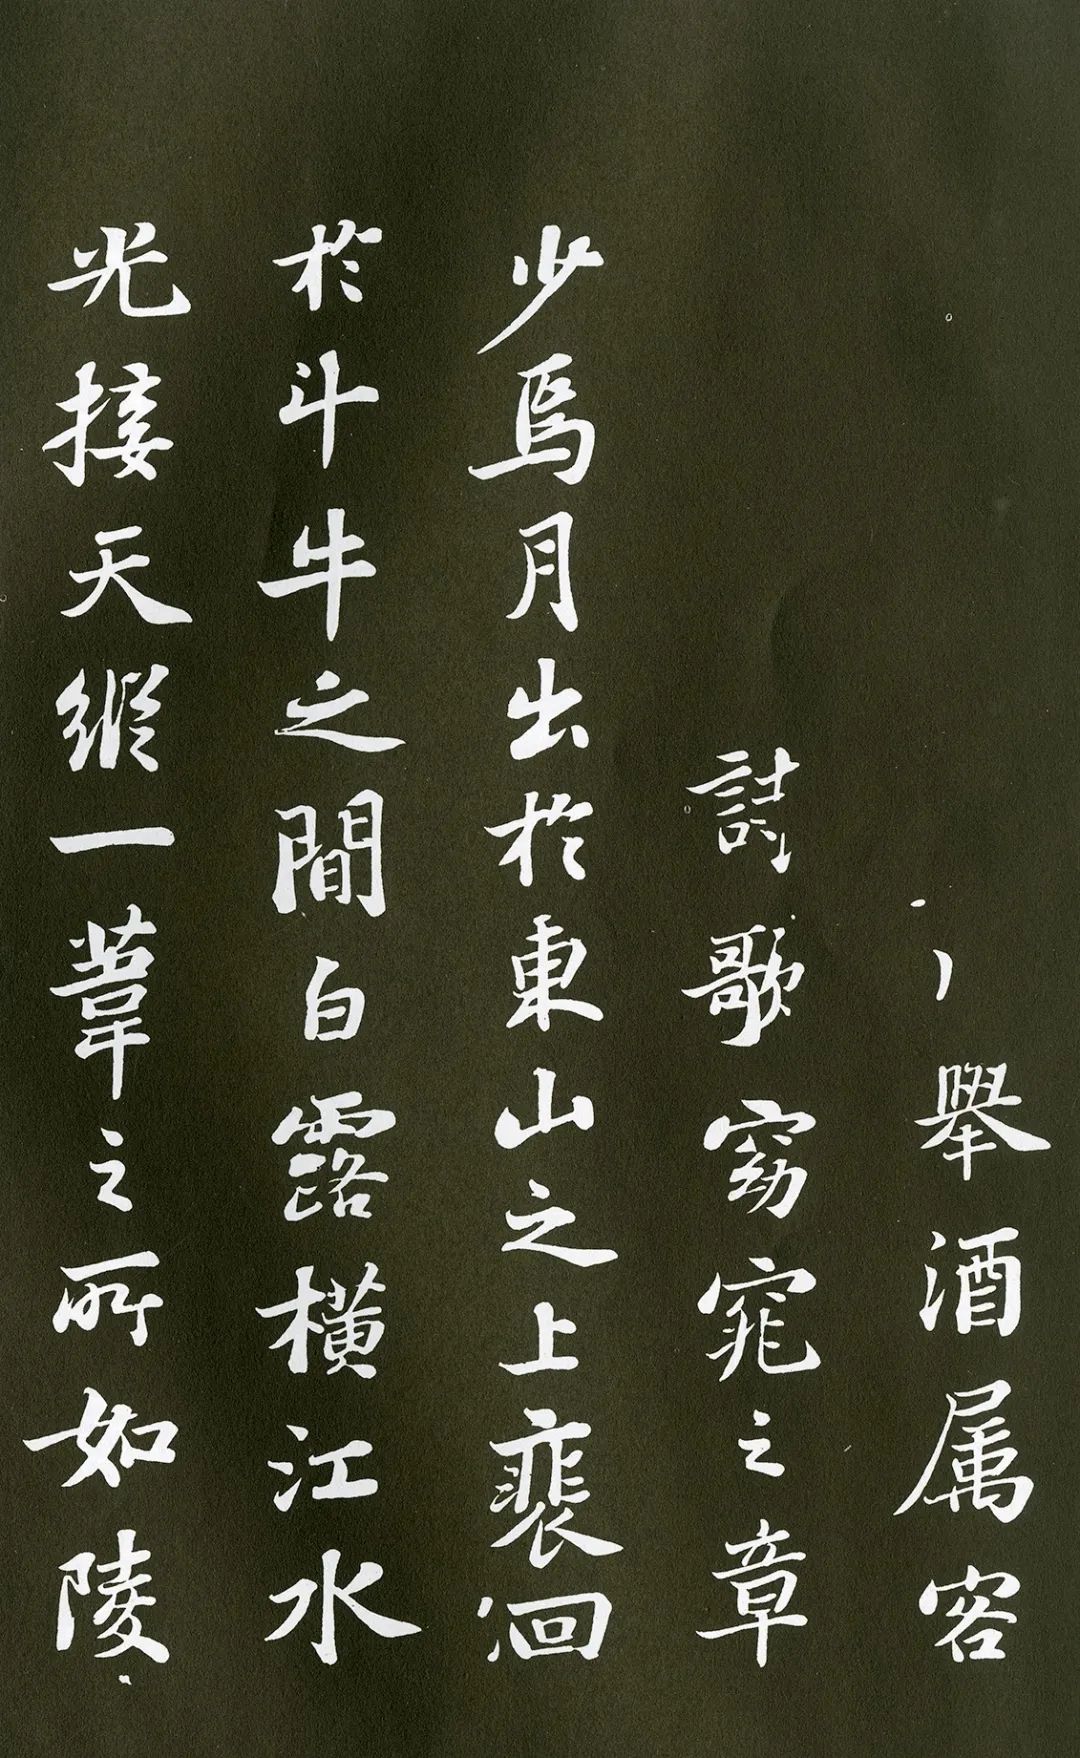 舉酒属客
詩歌窈窕之章
少焉月出於東山之上裴回
於斗牛之間白露横江水
光接天縱一葦之所如陵